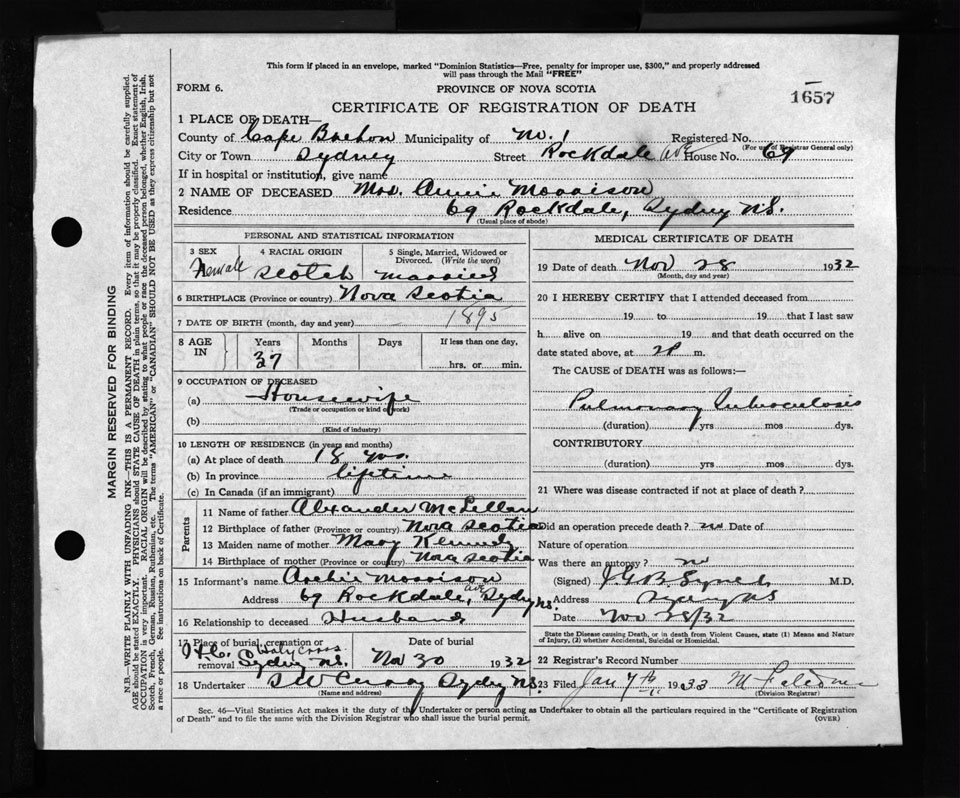 This form if placed in an envelope, marked "Dominion Statistics—Free, penalty for improper use, $300," and properly addressed
will pass through the Mail "FREE"
FORM 6.
PROVINCE OF NOVA SCOTIA
1657
CERTIFICATE OF REGISTRATION OF DEATH
1 PLACE OF DEATH—
County of Cape Breton Municipality of No. 1 Registered No.
(For use of Registrar General only)
City or Town Sydney Street Rockdale Ave House No. 69
If in hospital or institution, give name
2 NAME OF DECEASED Mrs. Annie Morrison
Residence 69 Rockdale, Sydney N.S.
(Usual place of abode)
PERSONAL AND STATISTICAL INFORMATION
3 SEX 4 RACIAL ORIGIN 5 Single, Married, Widowed or Divorced. (Write the word)
Female Scotch married
6 BIRTHPLACE (Province or country) Nova Scotia
7 DATE OF BIRTH (month, day and year) 1895
8 AGE IN Years Months Days If less than one day,
37 hrs. or min.
9 OCCUPATION OF DECEASED
(a) Housewife
(Trade or occupation or kind of work)
(b)
(Kind of industry)
10 LENGTH OF RESIDENCE (in years and months)
(a) At place of death 18 yrs.
(b) In province lifetime
(c) In Canada (if an immigrant)
Parents
11 Name of father Alexander McLellan
12 Birthplace of father (Province or country) Nova Scotia
13 Maiden name of mother Mary Kennedy
14 Birthplace of mother (Province or country) Nova Scotia
15 Informant's name Archie Morrison
Address 69 Rockdale, Ave Sydney N.S.
16 Relationship to deceased Husband
17 Place of burial, cremation or removal Holy Cross Sydney N.S.
Date of burial Nov 30 1932
18 Undertaker Sydney N.S.
(Name and address)
MEDICAL CERTIFICATE OF DEATH
19 Date of death Nov 28 1932
(Month, day and year)
20 I HEREBY CERTIFY that I attended deceased from
19 to 19 that I last saw
h alive on 19 and that death occurred on the
date stated above, at 2P m.
The CAUSE of DEATH was as follows:—
Pulmonary Tuberculosis
(duration) yrs mos dys.
CONTRIBUTORY
(duration) yrs mos dys.
21 Where was disease contracted if not at place of death?
Did an operation precede death? no Date of
Nature of operation
Was there an autopsy? no
(Signed) J G B Lynch M.D.
Address Sydney N.S.
Date Nov 28/32
State the Disease causing Death, or in death from Violent Causes, state (1) Means and Nature of Injury, (2) whether Accidental, Suicidal or Homicidal.
22 Registrar's Record Number
23 Filed Jan 7th 1933
(Division Registrar)
Sec. 46—Vital Statistics Act makes it the duty of the Undertaker or person acting as Undertaker to obtain all the particulars required in the "Certificate of Registration
of Death" and to file the same with the Division Registrar who shall issue the burial permit.
(OVER)
MARGIN RESERVED FOR BINDING
N.B.—WRITE PLAINLY WITH UNFADING INK—THIS IS A PERMANENT RECORD. Every item of information should be carefully supplied.
AGE should be stated EXACTLY. PHYSICIANS should STATE CAUSE OF DEATH in plain terms, so that it may be properly classified. Exact statement of
OCCUPATION is very important. RACIAL ORIGIN will be described by stating to what people or race the deceased person belonged, whether English, Irish,
Scotch, French, German, Russian, Ruthenian, etc. The terms "AMERICAN" or "CANADIAN" SHOULD NOT BE USED as they express citizenship but not
a race or people. See instructions on back of Certificate.